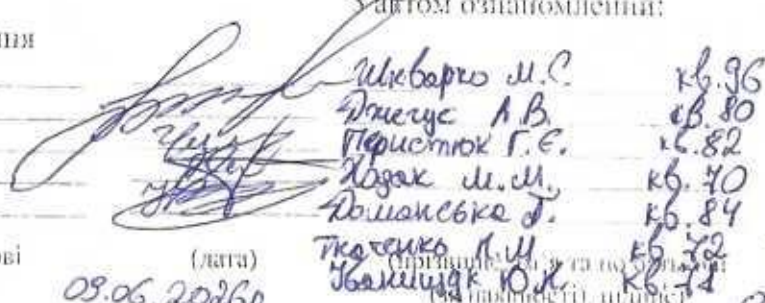 З актом ознайомлений:
ня
Шкварко М.С. кв. 96
Джегус А.В. кв. 80
Перистюк Г.Є. кв. 82
Ходак М.М. кв. 70
Доманська Т. кв. 84
Ткаченко Л.М. кв. 72
Іванищак Ю.М. кв. 71
ові (дата)
09.06.2026р